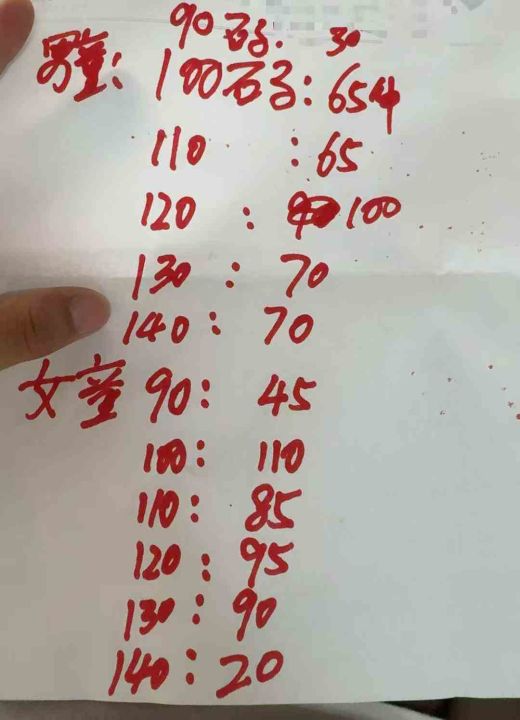 90码: 30
男童: 100码: 65件
110 : 65
120 : 100
130 : 70
140 : 70
女童 90: 45
100: 110
110: 85
120: 95
130: 90
140: 20